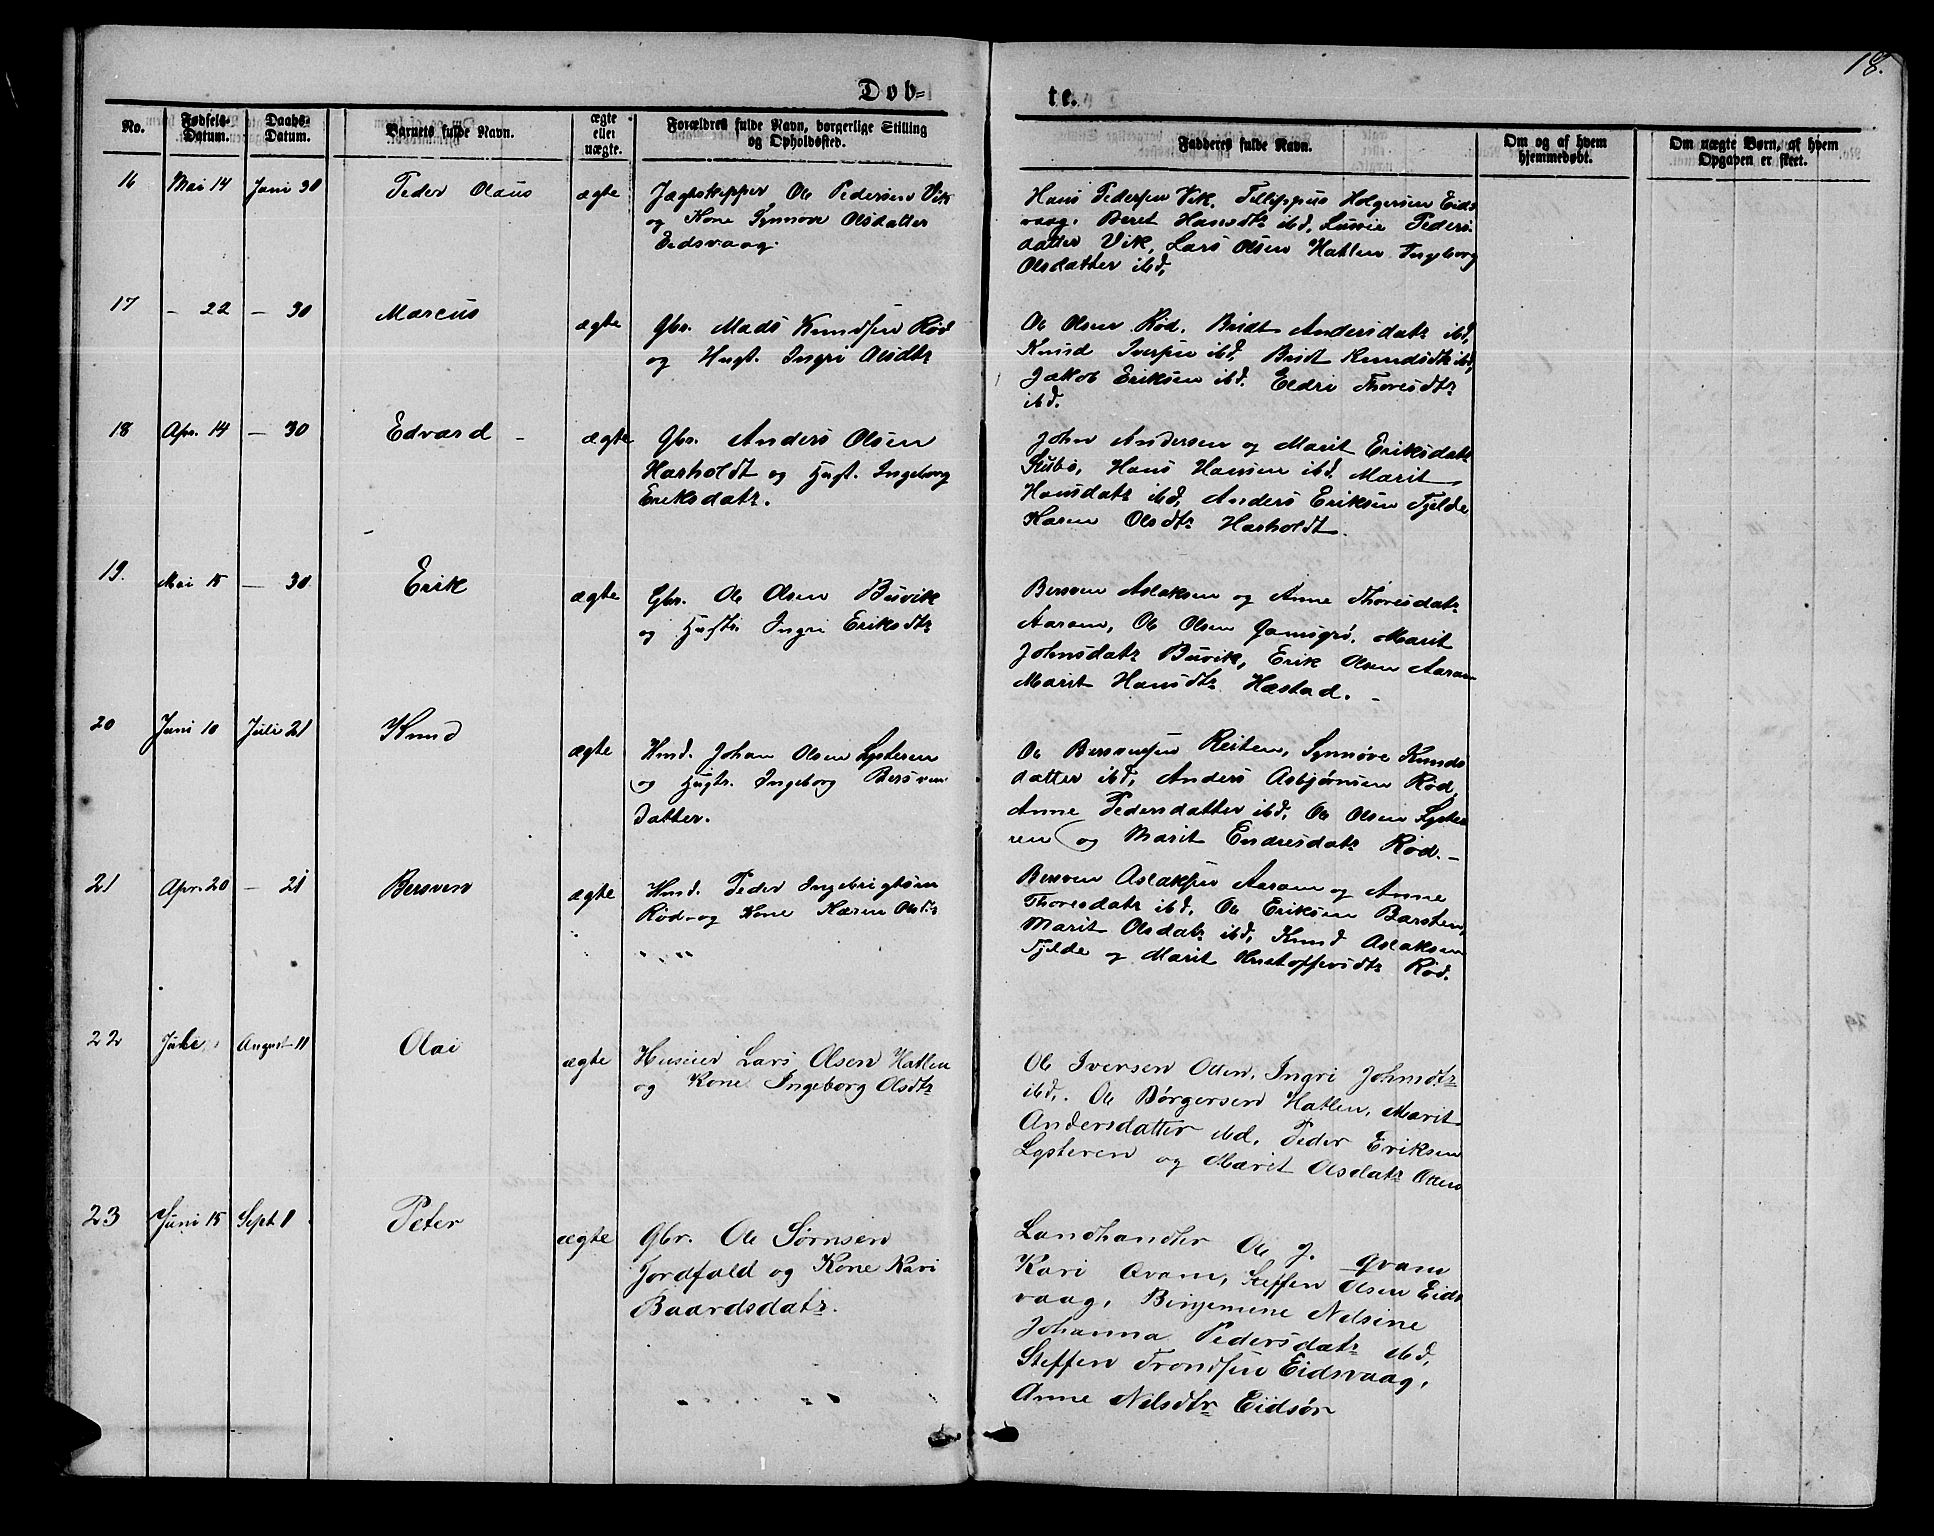 18.
Dob-
te.
No.
Fødsels-
Datum.
Daabs-
Datum.
Barnets fulde Navn.
ægte
eller
uægte.
Forældres fulde Navn, borgerlige Stilling
og Opholdssted.
Fadderes fulde Navn.
Om og af hvem
hjemmedøbt.
Om uægte Børn, af hvem
Opgaven er skeet.
16 Mai 14 Juni 30 Peder Olaus ægte
Jægtskipper Ole Pedersen Vik
og Kone Synnove Olsdatter
Eidsvaag.
Hans Pedersen Vik, Fillippus Holgersen Eids
vaag. Beret Hansdtr ibd, Lussie Peders
datter Vik, Lars Olsen Hatlen Ingeborg
Olsdatter ibd,
17 – 22 – 30 Marcus ægte
Gbr. Mads Knudsen Rød
og Hust. Ingri Olsdtr
Ole Olsen Rød, Bridt Andersdatr ibd,
Knud Iversen ibd, Bridt Knudsdtr ibd,
Jakob Eriksen ibd. Eldri Thoresdtr
ibd.
18 Apr. 14 – 30 Edvard – ægte
Gbr. Anders Olsen
Harholdt og Hust. Ingeborg
Eriksdatr.
John Andersen og Marit Eriksdatr
Stubø, Hans Hansen ibd, Marit
Hansdatr ibd, Anders Eriksen Tjelde
Karen Olsdtr Harholdt.
19. Mai 15 – 30. Erik ægte
Gbr. Ole Olsen Buvik
og Hustr. Ingri Eriksdtr
Bersven Aslaksen og Anne Thoresdatr
Aaram, Ole Olsen Marit
Johnsdatr Buvik, Erik Olsen Aaram
Marit Hansdtr Hæstad. –
20 Juni 10 Juli 21 Knud ægte
Hmd. Johan Olsen Lysteren
og Hustr. Ingeborg Bersven
datter.
Ole Bersvensen Reiten, Synnøve Knuds
datter ibd, Anders Asbjørnsen Rød,
Anne Pedersdatter ibd, Ole Olsen Lyste
ren og Marit Endresdatr Rød. –
21 Apr. 20 – 21 Bersven ægte
Hmd. Peder Ingebrigtsen
Rød og Kone Karen Olsdtr
Bersven Aslaksen Aaram og Anne
Thoresdatr ibd, Ole Eriksen Barsten,
Marit Olsdatr ibd, Knud Aslaksen
Tjelde og Marit Kristoffersdtr Rød.
22 Juli August 11 Olai ægte
Huseier Lars Olsen Hatlen
og Kone Ingeborg Olsdtr
Ole Iversen Otten, Ingri Johnsdtr
ibd,. Ole Børgersen Hatlen, Marit
Andersdatter ibd, Peder Eriksen
Lysteren og Marit Olsdatr Otten
23 Juni 15 Sept 8 Peter ægte
Gbr. Ole Sørnsen
Tordfald og Kone Kari
Baardsdatr.
Landhandler Ole J. Qvam
Kari Qvam, Steffen Olsen Eids
vaag, Binjemine Nelsine
Johanna Pedersdatr ibd,
Steffen Trondsen Eidsvaag,
Anne Nelsdtr Eidsør